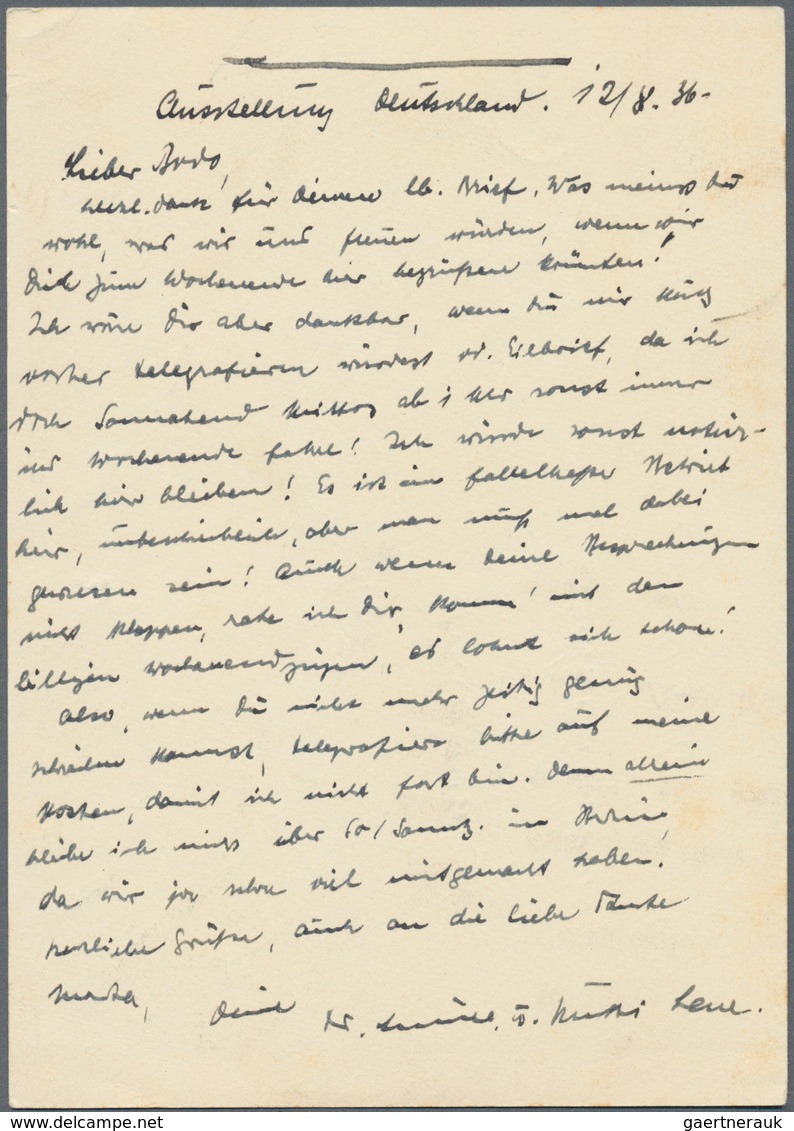 Ausstellung Deutschland. 12/8. 36-
Lieber
herzl. Dank für Deinen lb. Brief. Was meinst Du
wohl, was wir uns freuen würden, wenn wir
Dich zum Wochenende hier begrüßen könnten!
Ich wäre Dir aber dankbar, wenn Du mir kurz
vorher telegrafieren würdest od. Eilbrief, da ich
doch Sonnabend Mittag ab 1 Uhr sonst immer
ins Wochenende fahre! Ich würde sonst natür-
lich hier bleiben! Es ist ein fabelhafter Betrieb
hier, unbeschreiblich, aber man muß mal dabei
gewesen sein! Auch wenn Deine Besprechungen
nicht klappen, rate ich Dir, komm' mit den
billigen Wochenendzügen, es lohnt sich schon!
Also, wenn Du nicht mehr zeitig genug
schreiben kannst, telegrafiere bitte auf meine
Kosten, damit ich nicht fort bin. Denn allein
bleibe ich nicht über So/Sonnt. in Berlin,
da wir ja schon viel mitgemacht haben.
Herzliche Grüße, auch an die liebe Tante
Deine